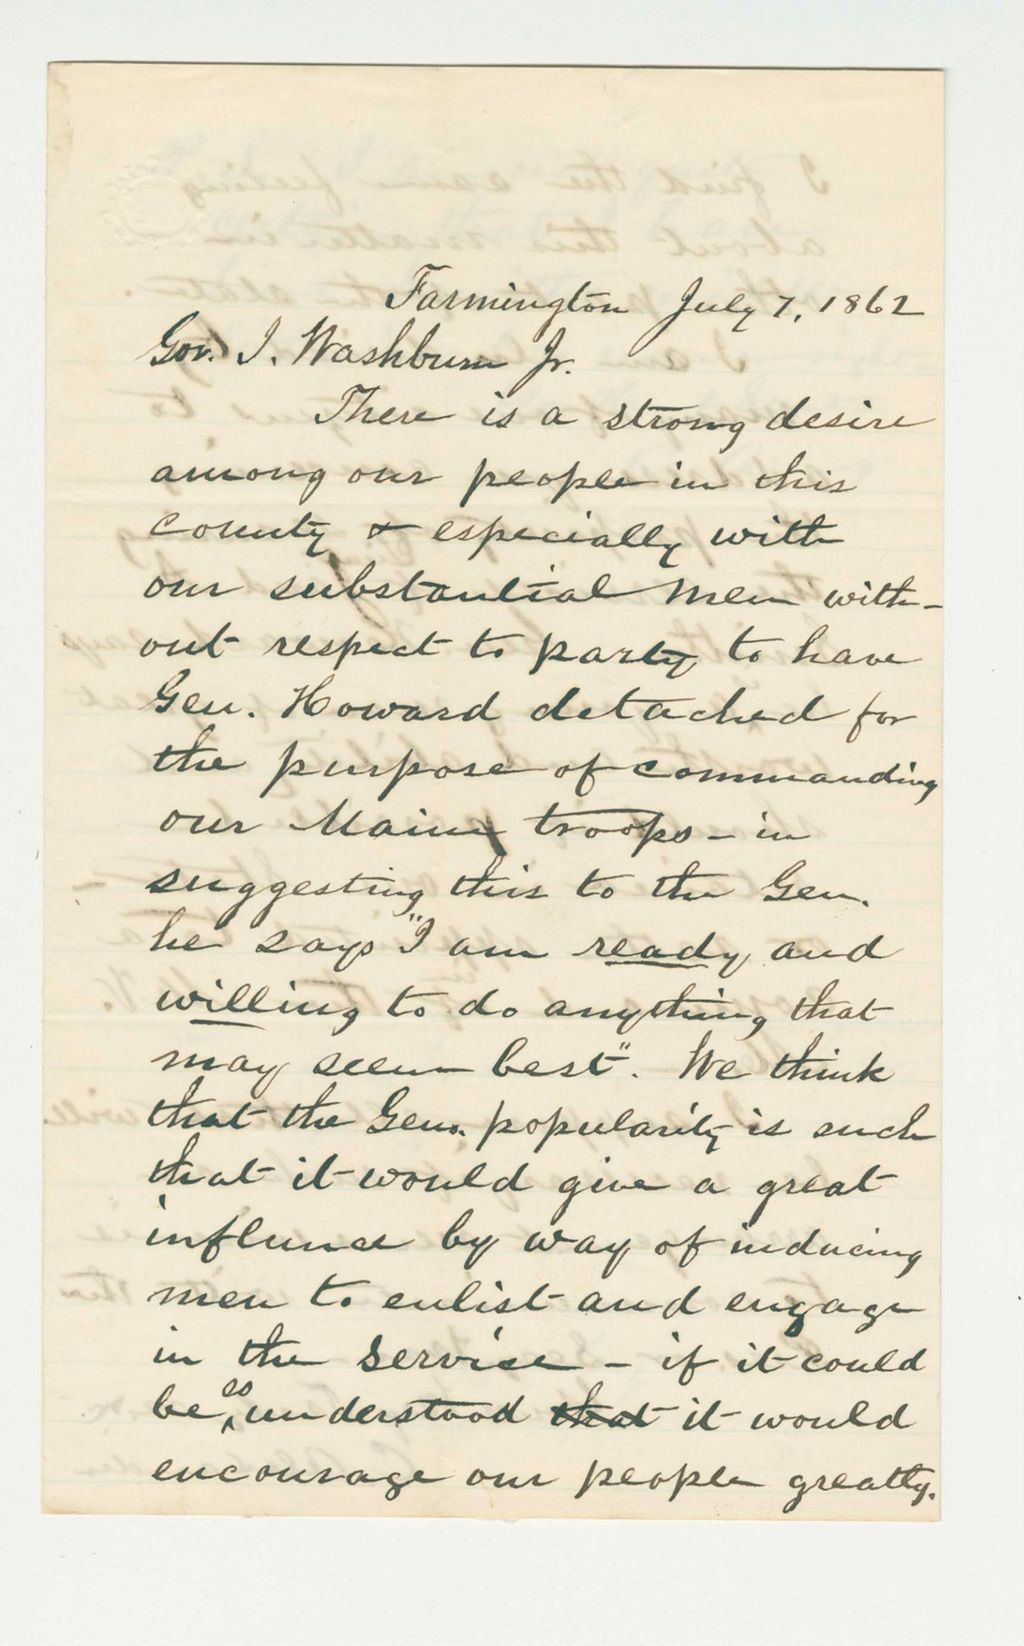 Farmington July 7, 1862
Gov. I. Washburn Jr.
There is a strong desire
among our people in this
county & especially with
our substantial men with-
out respect to party to have
Gen. Howard detached for
the purpose of commanding
our Maine troops - in
suggesting this to the Gen.
he says "I am ready and
willing to do anything that
may seem best". We think
that the Gens. popularity is such
that it would give a great
influence by way of inducing
men to enlist and engage
in the service - if it could
be so understood that it would
encourage our people greatly.